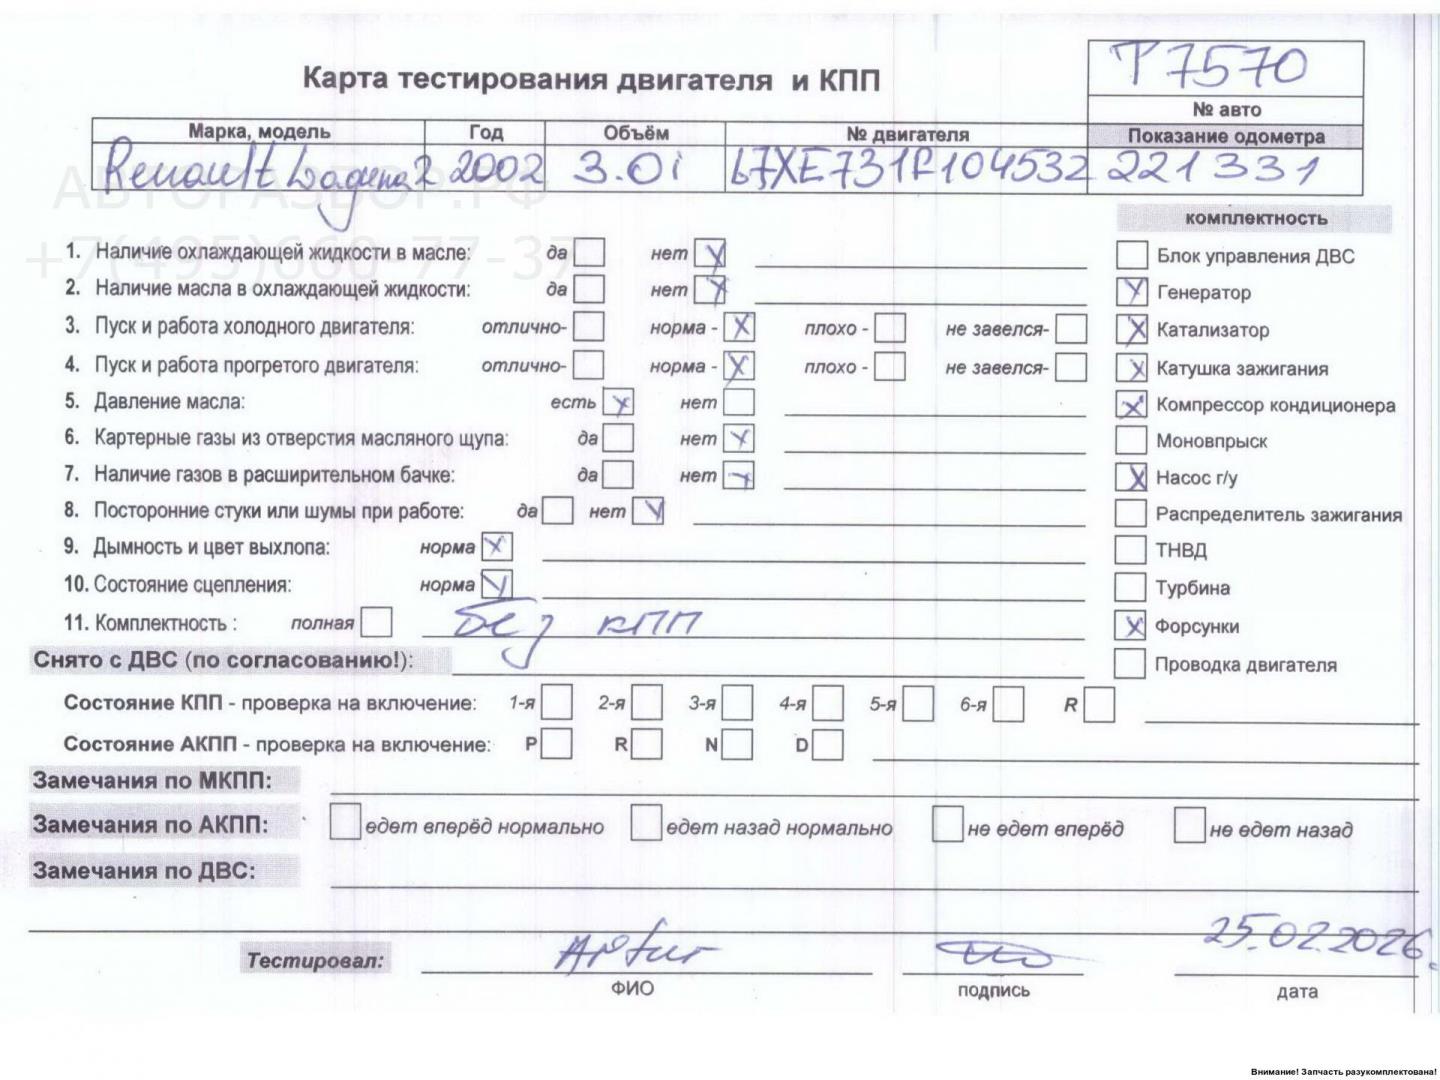 Карта тестирования двигателя и КПП
T 7570
№ авто
Марка, модель Год Объём № двигателя Показание одометра
Renault Laguna 2 2002 3.0i L7XE731R104532 221331
АВТОРАЗБОР.РФ
+7(495)660-77-37
комплектность
1. Наличие охлаждающей жидкости в масле: да нет Блок управления ДВС
2. Наличие масла в охлаждающей жидкости: да нет Генератор
3. Пуск и работа холодного двигателя: отлично- норма - плохо - не завелся- Катализатор
4. Пуск и работа прогретого двигателя: отлично- норма - плохо - не завелся- Катушка зажигания
5. Давление масла: есть нет Компрессор кондиционера
6. Картерные газы из отверстия масляного щупа: да нет Моновпрыск
7. Наличие газов в расширительном бачке: да нет Насос г/у
8. Посторонние стуки или шумы при работе: да нет Распределитель зажигания
9. Дымность и цвет выхлопа: норма ТНВД
10. Состояние сцепления: норма Турбина
11. Комплектность : полная без кпп Форсунки
Снято с ДВС (по согласованию!): Проводка двигателя
Состояние КПП - проверка на включение: 1-я 2-я 3-я 4-я 5-я 6-я R
Состояние АКПП - проверка на включение: P R N D
Замечания по МКПП:
Замечания по АКПП: едет вперёд нормально едет назад нормально не едет вперёд не едет назад
Замечания по ДВС:
Тестировал: Artur 25.02.2026.
ФИО подпись дата
Внимание! Запчасть разукомплектована!